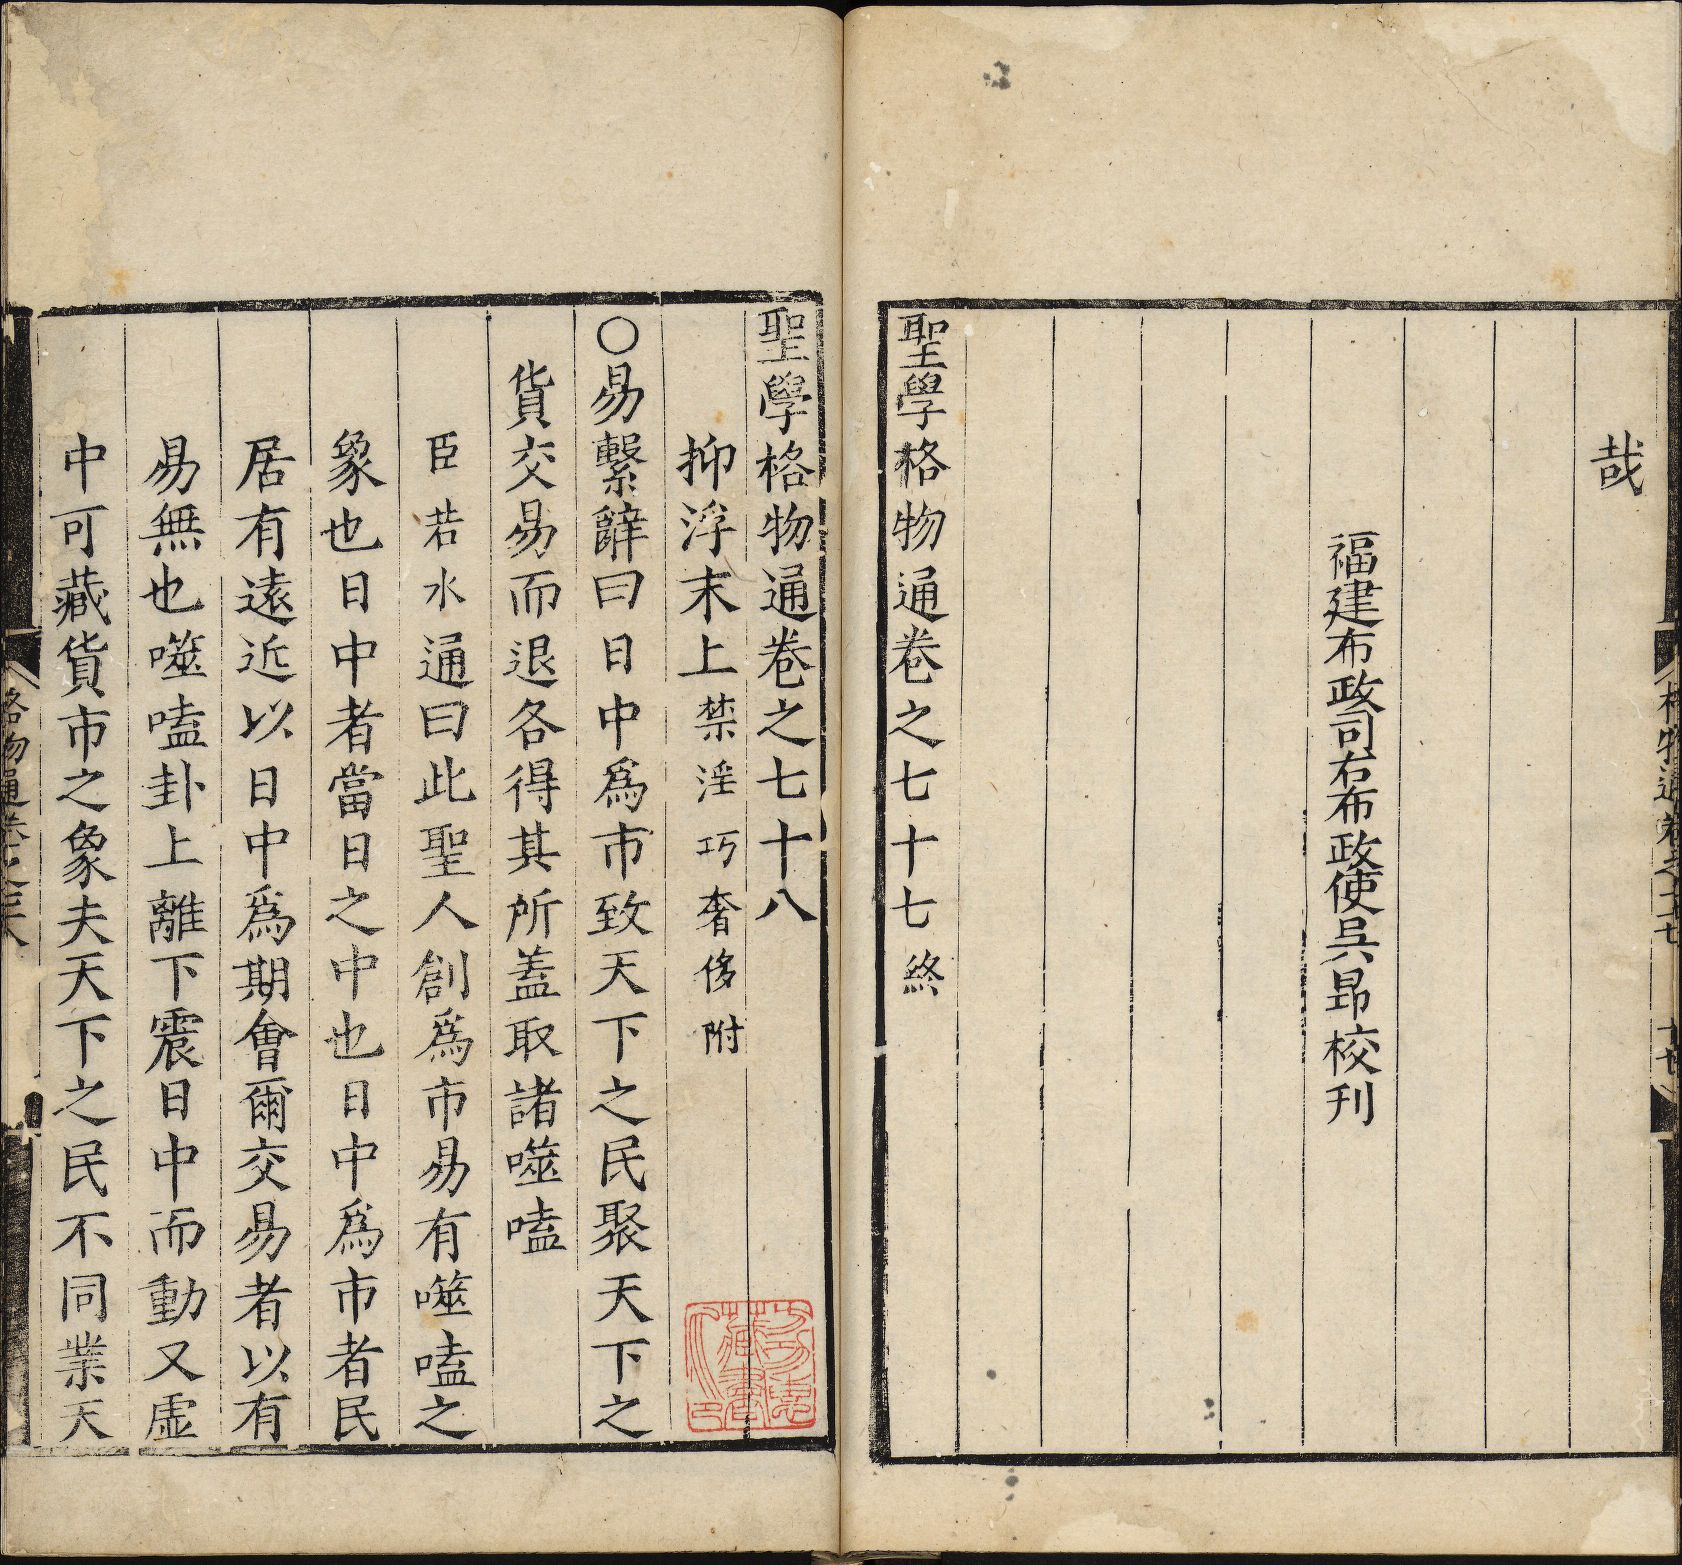 哉
福建布政司右布政使吳昂校刊
聖學格物通卷之七十七終
聖學格物通卷之七十八
抑浮末上禁淫巧奢侈附
○易繫辭曰日中爲市致天下之民聚天下之
貨交易而退各得其所蓋取諸噬嗑
臣若水通曰此聖人創爲市易有噬嗑之
象也日中者當日之中也日中爲市者民
居有遠近以日中爲期會爾交易者以有
易無也噬嗑卦上離下震日中而動又虛
中可藏貨市之象夫天下之民不同業天